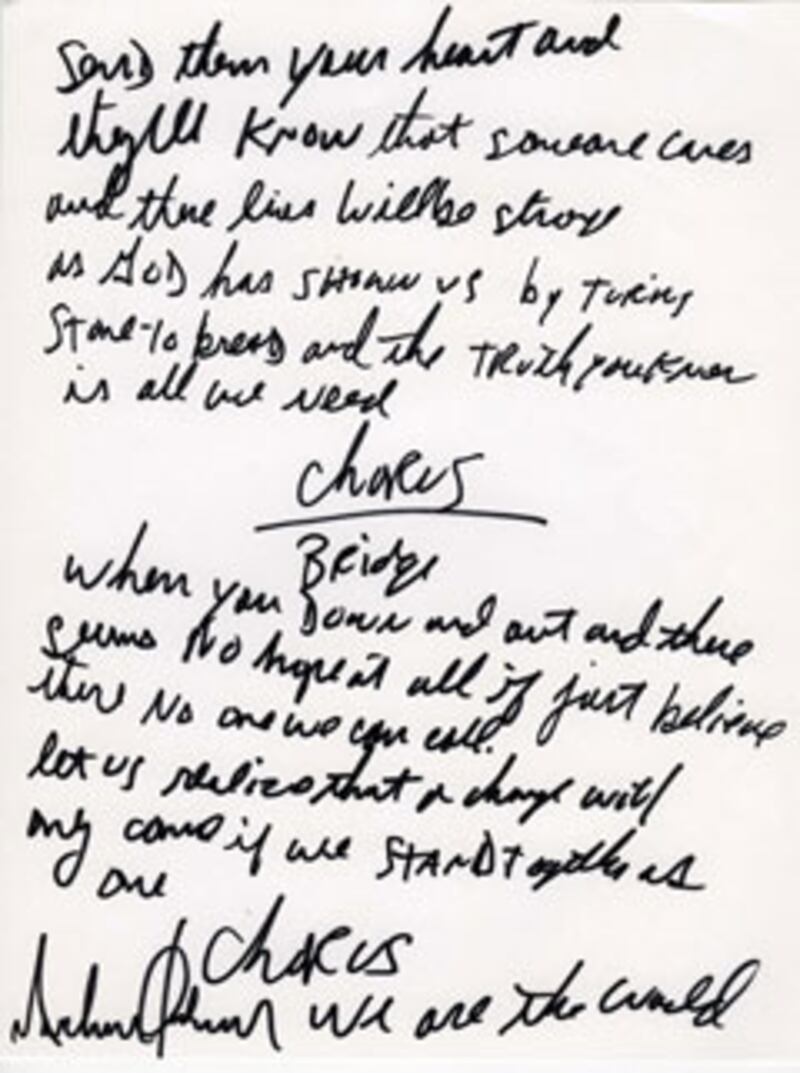 Send them your heart and
they'll Know that someone cares
and there lives will be strong
as GOD has SHOWN US by TURING
Stone-To bread and the TRUTH you Know
is all we need
Chorus
Bridge
When you Down and out and there
seems No hope at all if just believe
there No one we can call.
let us realize that a change will
my come if we STAND Together as
one
Chorus
We are the World